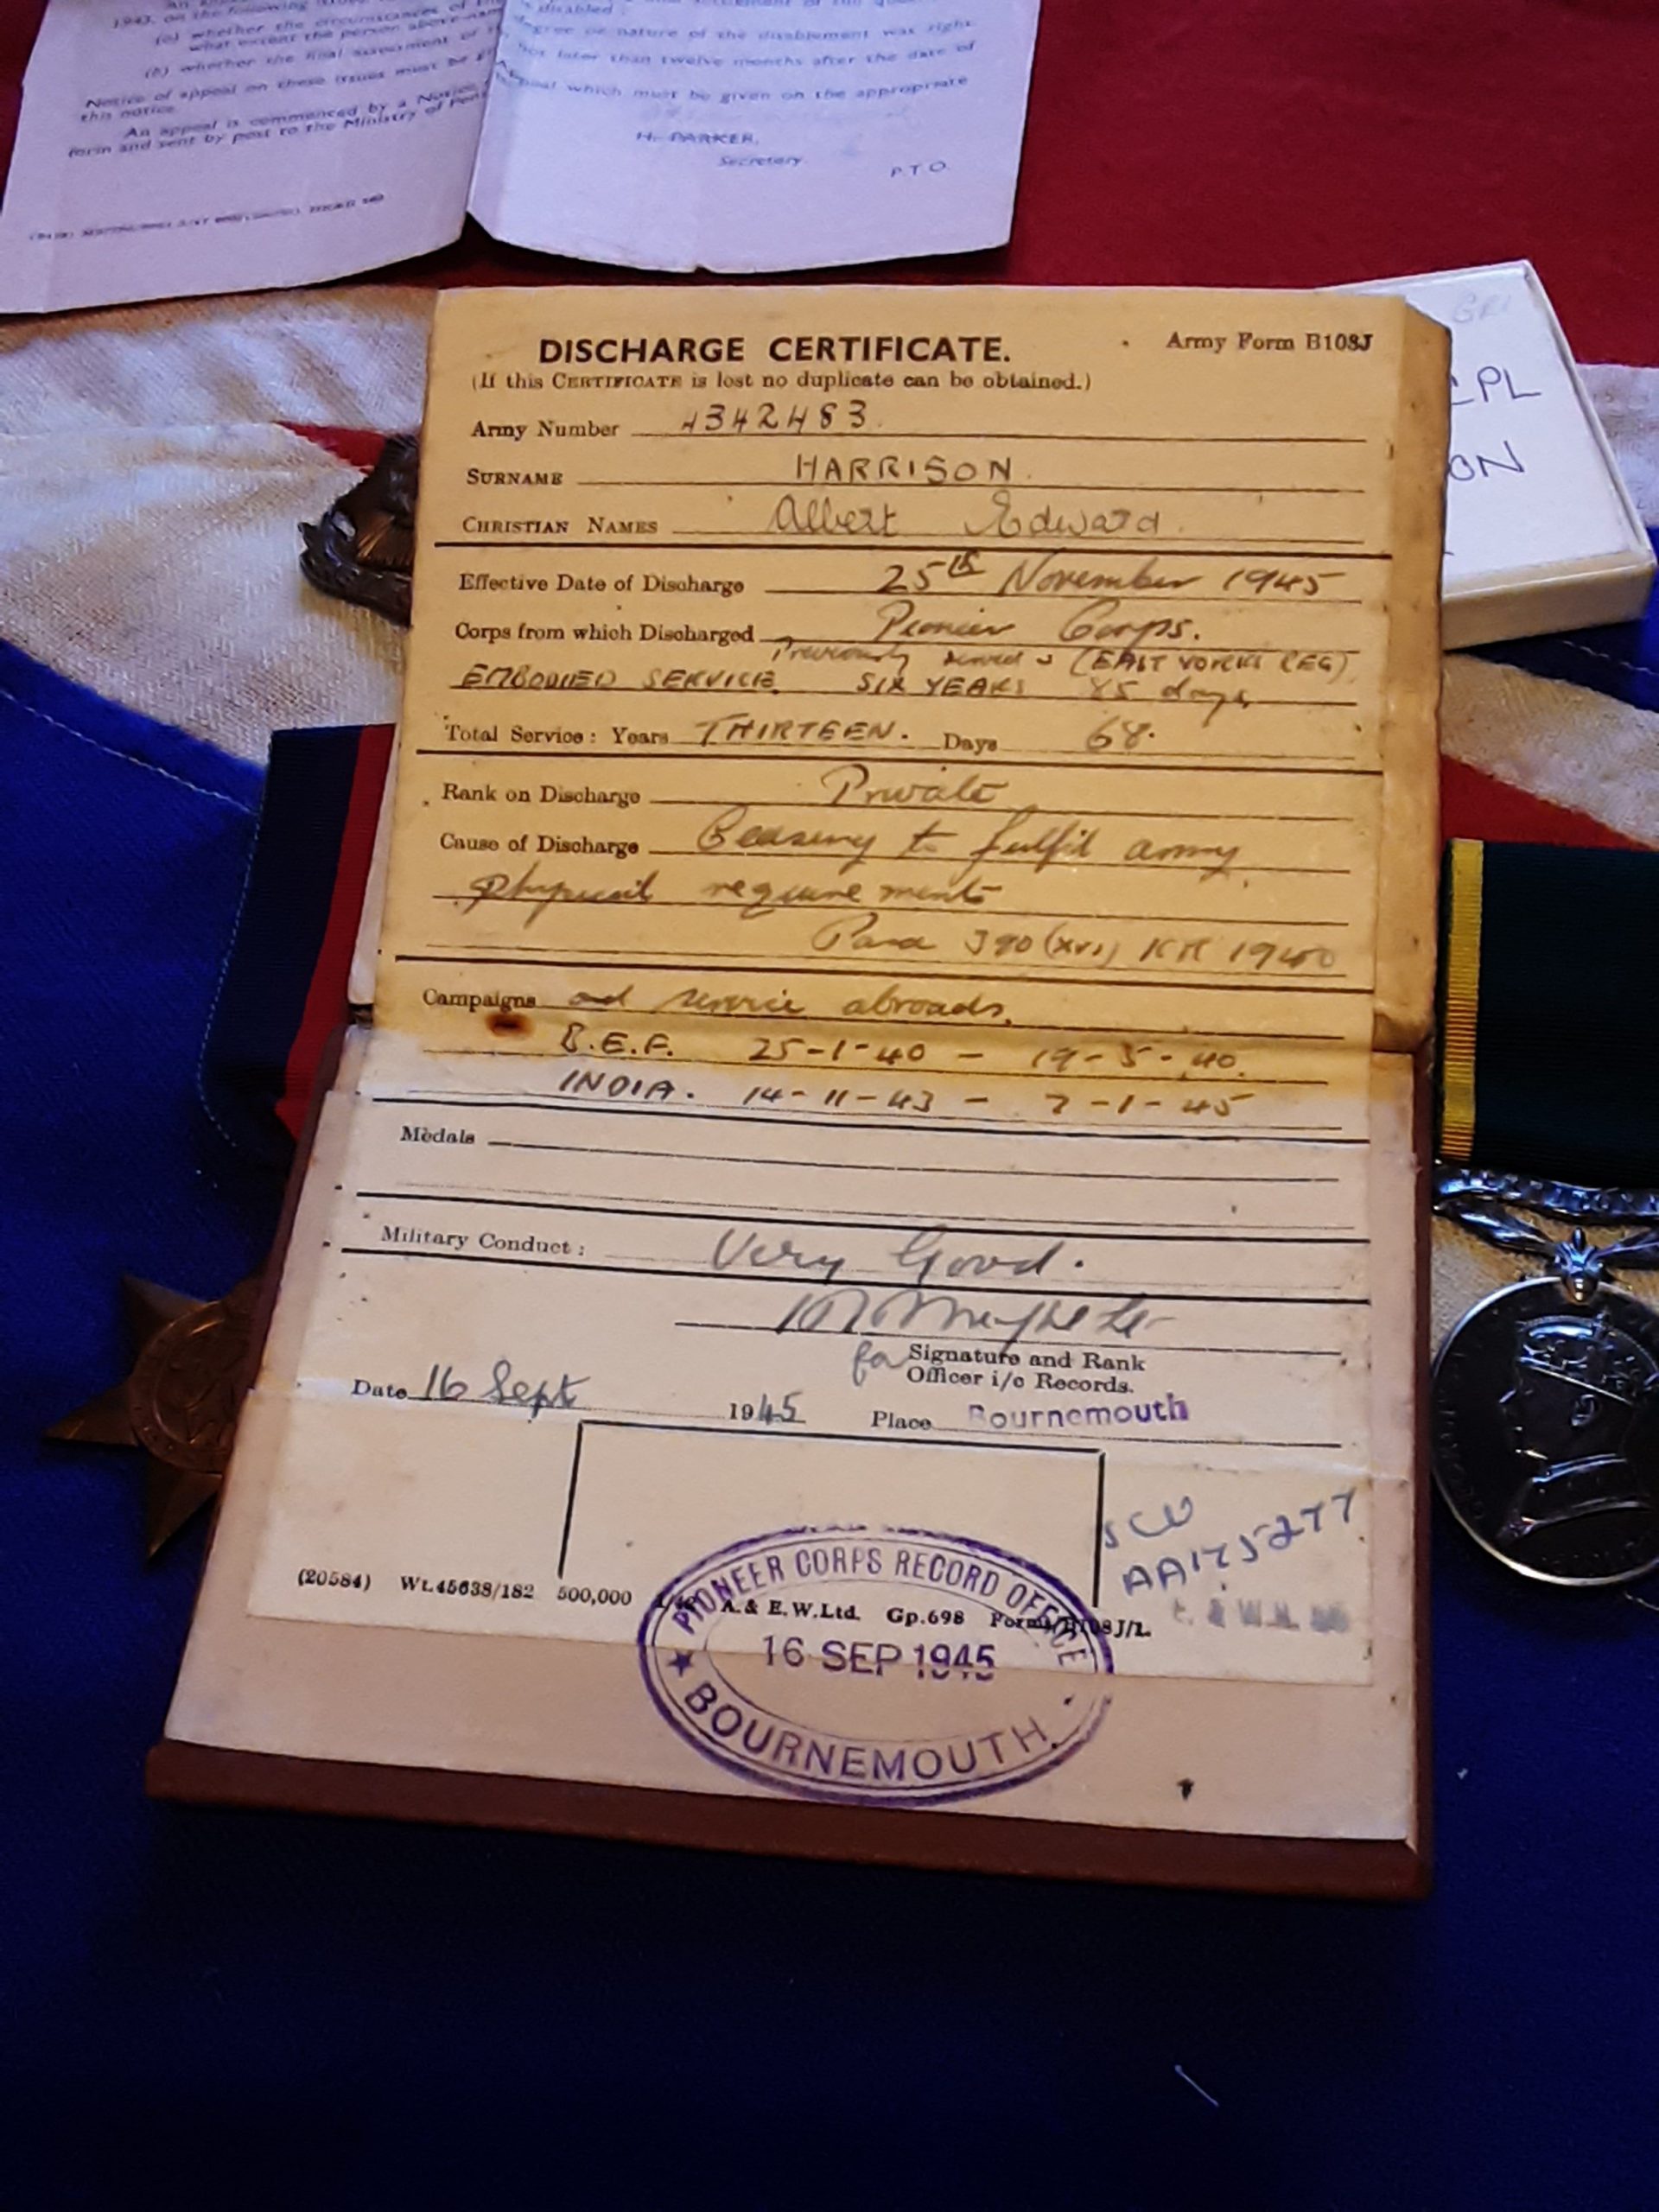 1943, on the following
(a) whether the circumstances of the
what extent the person above-nam
(b) whether the final assessment of
Notice of appeal on these issues must be
this notice.
An appeal is commenced by a Notice
form and sent by post to the Ministry of Pen
disabled
degree or nature of the disablement was right
not later than twelve months after the date of
Appeal which must be given on the appropriate
H. PARKER,
Secretary
P.T.O.
CPL
ON
DISCHARGE CERTIFICATE.
Army Form B108J
(If this CERTIFICATE is lost no duplicate can be obtained.)
Army Number 4342483.
SURNAME HARRISON.
CHRISTIAN NAMES Albert Edward.
Effective Date of Discharge 25th November 1945
Corps from which Discharged Pioneer Corps.
Previously served (EAST YORKS REG)
EMBODIED SERVICE SIX YEARS 85 days
Total Service: Years THIRTEEN. Days 68.
Rank on Discharge Private
Cause of Discharge Ceasing to fulfil army
physical requirements
Para 390 (xvi) KR 1940
Campaigns and service abroads.
B.E.F. 25-1-40 - 19-5-40.
INDIA. 14-11-43 - 7-1-45
Medals
Military Conduct: Very Good.
for Signature and Rank
Officer i/c Records.
Date 16 Sept 1945 Place Bournemouth
AA175277
(20584) Wt.45638/182 500,000 A.& E.W.Ltd. Gp.698 Forms/B108J/1.
PIONEER CORPS RECORD OFFICE
16 SEP 1945
BOURNEMOUTH.